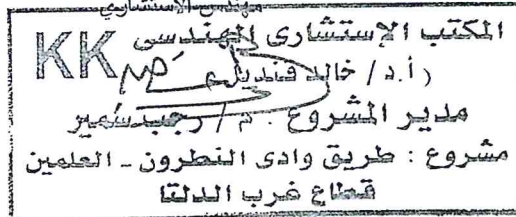 مهندس الاستشاري
المكتب الإستشارى الهندسى
KK
(أ.د / خالد قنديل)
مدير المشروع : م / رجب سمير
مشروع : طريق وادى النطرون - العلمين
قطاع غرب الدلتا